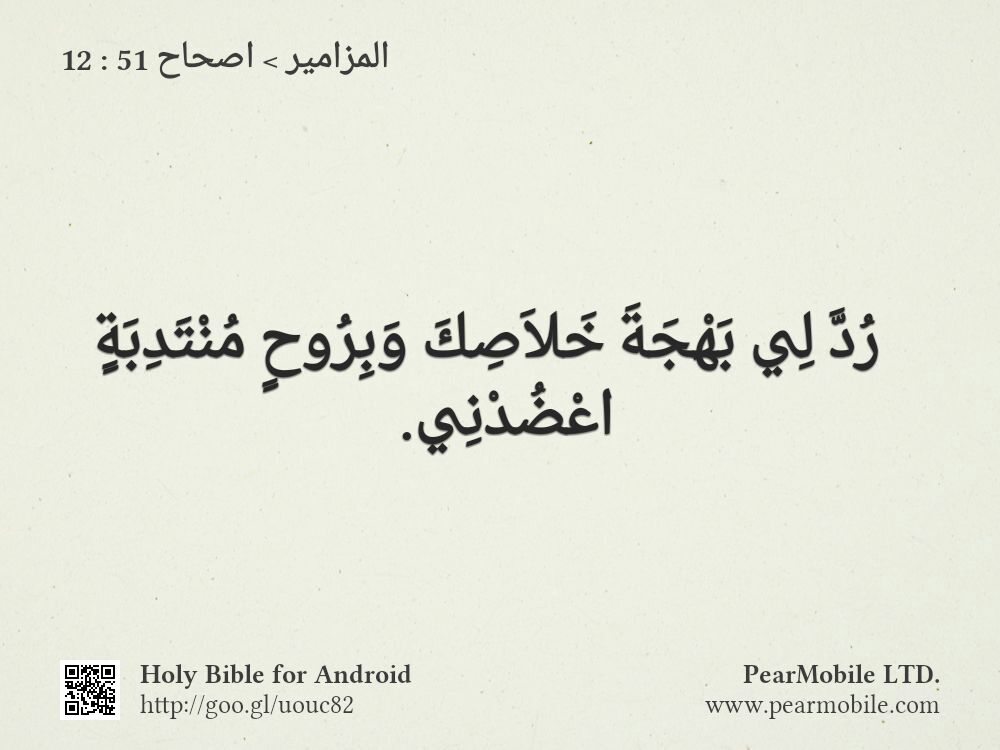 المزامير > اصحاح 51 : 12
رُدَّ لِي بَهْجَةَ خَلاَصِكَ وَبِرُوحٍ مُنْتَدِبَةٍ
اعْضُدْنِي.
Holy Bible for Android
http://goo.gl/uouc82
PearMobile LTD.
www.pearmobile.com